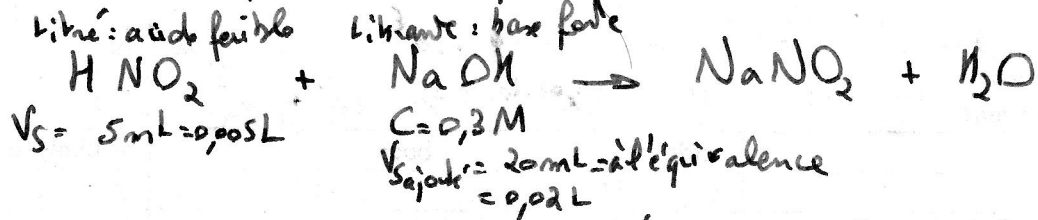 Litré : acide faible Litrante : base forte
HNO₂ + NaOH → NaNO₂ + H₂O
Vs = 5mL = 0,005L C = 0,3M
Vs ajouté = 20mL = à l'équivalence
= 0,02L